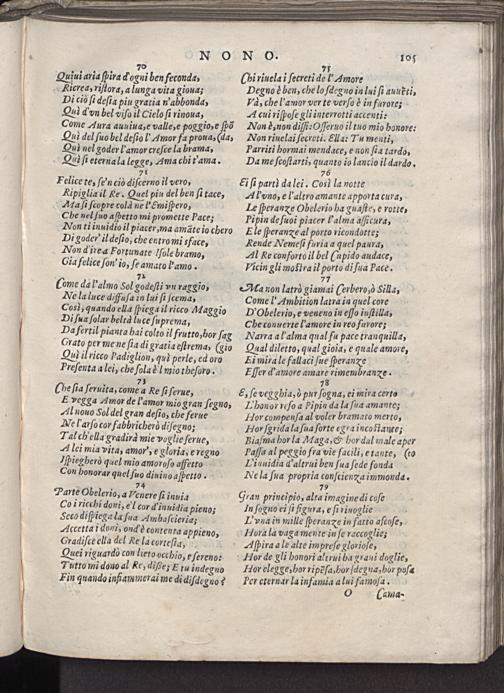 NONO.
105
70
Quiui aria spira d'ogni ben feconda,
Ricrea, ristora, a lunga vita gioua;
Di ciò si desia piu gratia n'abbonda,
Quì d'vn bel viso il Cielo si rinoua,
Come Aura auuiua, e valle, e poggio, e spō
Quì del suo bel desio l'Amor fa proua, (da,
Quì nel goder l'amor cresce la brama,
Quì si eterna la legge, Ama chi t'ama.
71
Felice te, se'n ciò discerno il vero,
Ripiglia il Re. Quel piu del ben si tace,
Ma si scopre colà ne l'Emispero,
Che nel suo aspetto mi promette Pace;
Non ti inuidio il piacer, ma amāte io chero
Di goder' il desio, che entro mi sface,
Non d'irea Fortunate Isole bramo,
Gia felice son'io, se amato l'amo.
72
Come dà l'almo Sol godesti vn raggio,
Ne la luce diffusa in lui si scema,
Così, quando ella spiega il ricco Maggio
Di sua solar beltà luce suprema,
Da fertil pianta hai colto il frutto, hor sag
Grato per me ne sia di gratia estrema. (gio
Quì il ricco Padiglion, quì perle, ed oro
Presenta a lei, che sola è'l mio thesoro.
73
Che sia seruita, come a Re si serue,
E vegga Amor de l'amor mio gran segno,
Al nouo Sol del gran desio, che ferue
Ne l'arso cor fabbricherò disegno;
Tal ch'ella gradirà mie voglie serue,
A lei mia vita, amor', e gloria, e regno
Ispiegherò quel mio amoroso affetto
Con honorar quel suo diuino aspetto.
74
Parte Obelerio, a Venere si inuia
Co i ricchi doni, e'l cor d'inuidia pieno;
Seco dispiega la sua Ambascieria;
Accetta i doni, ond'è contenta appieno,
Gradisce ella del Re la cortesia,
Quei riguardò con lieto occhio, e sereno:
Tutto mi dono al Re, disse; E tu indegno
Fin quando infiammerai me di disdegno?
75
Chi riuela i secreti de l'Amore
Degno è ben, che lo sdegno in lui si auuēti,
Và, che l'amor ver te verso è in furore;
A cui rispose gli interrotti accenti:
Non è, non dissi: Osseruo il tuo mio honore:
Non riuelai secreti. Ella: Tu menti,
Parriti hormai mendace, e non sia tardo,
Da me scostarti, quanto io lancio il dardo.
76
Ei si partì da lei. Così la notte
A l'vno, e l'altro amante apporta cura,
Le speranze Obelerio ha guaste, e rotte,
Pipin de suoi piacer l'alma assicura,
E le speranze al porto ricondotte;
Rende Nemesi furia a quel paura,
Al Re conforto il bel Cupido audace,
Vicin gli mostra il porto di sua Pace.
77
Ma non latrò giamai Cerbero, ò Silla,
Come l'Ambition latra in quel core
D'Obelerio, e veneno in esso instilla,
Che conuerte l'amore in reo furore;
Narra a l'alma qual fu pace tranquilla,
Qual diletto, qual gioia, e quale amore,
Ei mira le fallaci sue speranze
Esser d'amore amare rimembranze.
78
E, se vegghia, ò pur sogna, ei mira certo
L'honor reso a Pipin da la sua amante;
Hor compensa al voler bramato merto,
Hor sgrida la sua sorte egra incostante;
Biasma hor la Maga, & hor dal male aper
Passa al peggio fra vie facili, e tante, (to
L'inuidia d'altrui ben sua sede fonda
Ne la sua propria conscienza immonda.
79
Gran principio, alta imagine di cose
In sogno ei si figura, e si riuoglie
L'vna in mille speranze in fatto ascose,
Hora la vaga mente in se raccoglie;
Aspira a le alte imprese gloriose,
Hor de gli honori altrui ha graui doglie,
Hor elegge, hor ripēsa, hor sdegna, hor posa
Per eternar la infamia a lui famosa.
O
Cama-